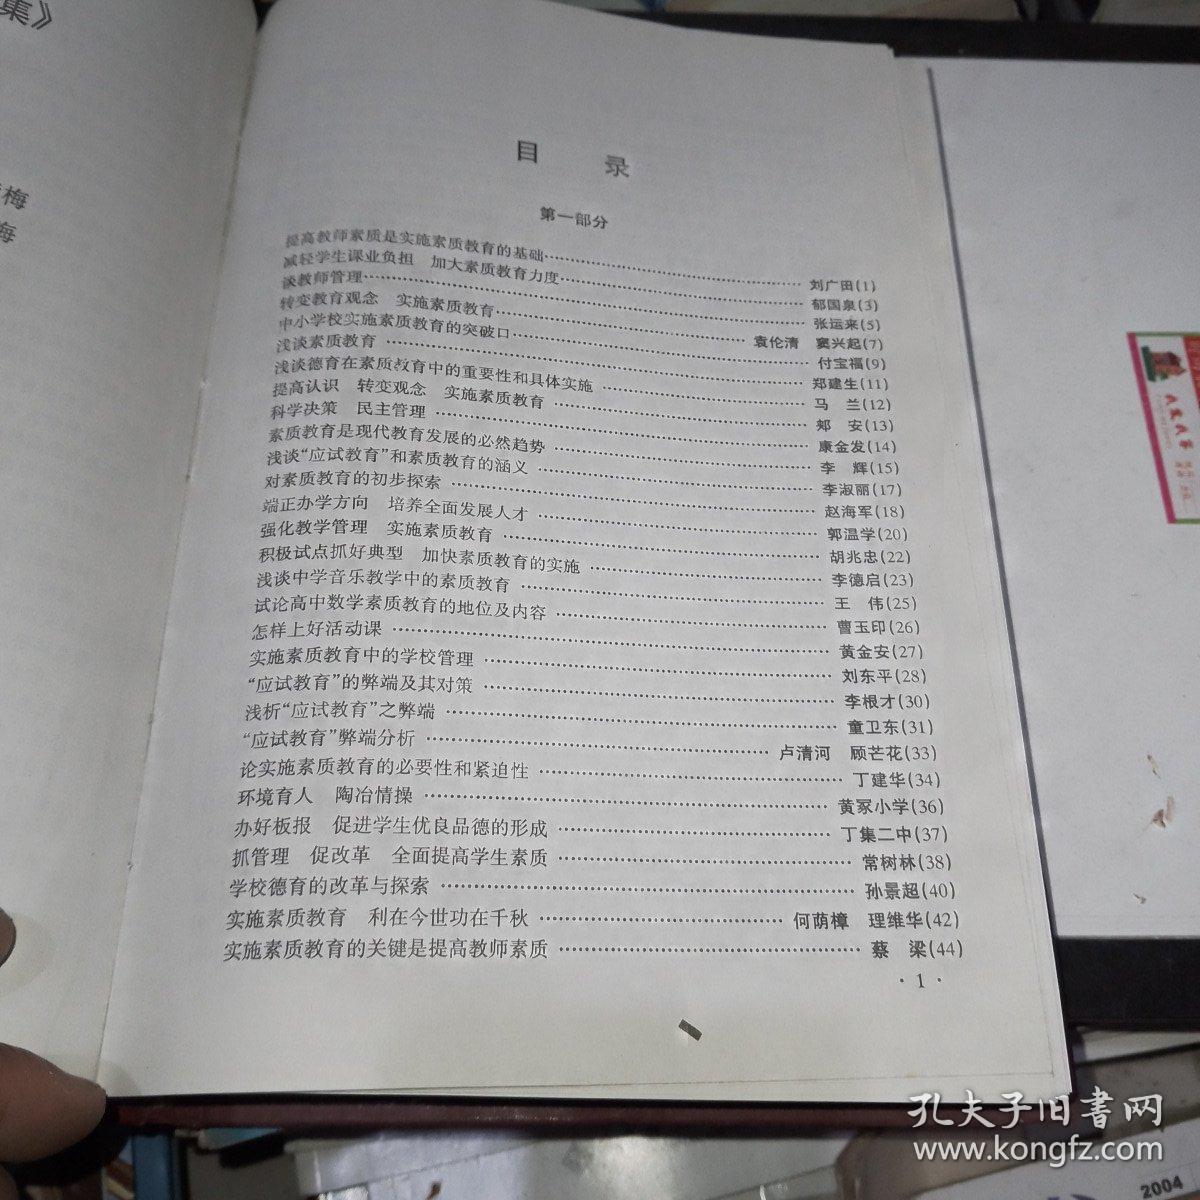 集》
梅
梅
目 录
第一部分
提高教师素质是实施素质教育的基础……刘广田(1)
减轻学生课业负担 加大素质教育力度……郁国泉(3)
谈教师管理……张运来(5)
转变教育观念 实施素质教育……袁伦清 窦兴起(7)
中小学校实施素质教育的突破口……付宝福(9)
浅谈素质教育……郑建生(11)
浅谈德育在素质教育中的重要性和具体实施……马 兰(12)
提高认识 转变观念 实施素质教育……郏 安(13)
科学决策 民主管理……康金发(14)
素质教育是现代教育发展的必然趋势……李 辉(15)
浅谈“应试教育”和素质教育的涵义……李淑丽(17)
对素质教育的初步探索……赵海军(18)
端正办学方向 培养全面发展人才……郭温学(20)
强化教学管理 实施素质教育……胡兆忠(22)
积极试点抓好典型 加快素质教育的实施……李德启(23)
浅谈中学音乐教学中的素质教育……王 伟(25)
试论高中数学素质教育的地位及内容……曹玉印(26)
怎样上好活动课……黄金安(27)
实施素质教育中的学校管理……刘东平(28)
“应试教育”的弊端及其对策……李根才(30)
浅析“应试教育”之弊端……童卫东(31)
“应试教育”弊端分析……卢清河 顾芒花(33)
论实施素质教育的必要性和紧迫性……丁建华(34)
环境育人 陶冶情操……黄冢小学(36)
办好板报 促进学生优良品德的形成……丁集二中(37)
抓管理 促改革 全面提高学生素质……常树林(38)
学校德育的改革与探索……孙景超(40)
实施素质教育 利在今世功在千秋……何荫樟 理维华(42)
实施素质教育的关键是提高教师素质……蔡 梁(44)
·1·
孔夫子旧书网
www.kongfz.com
2004